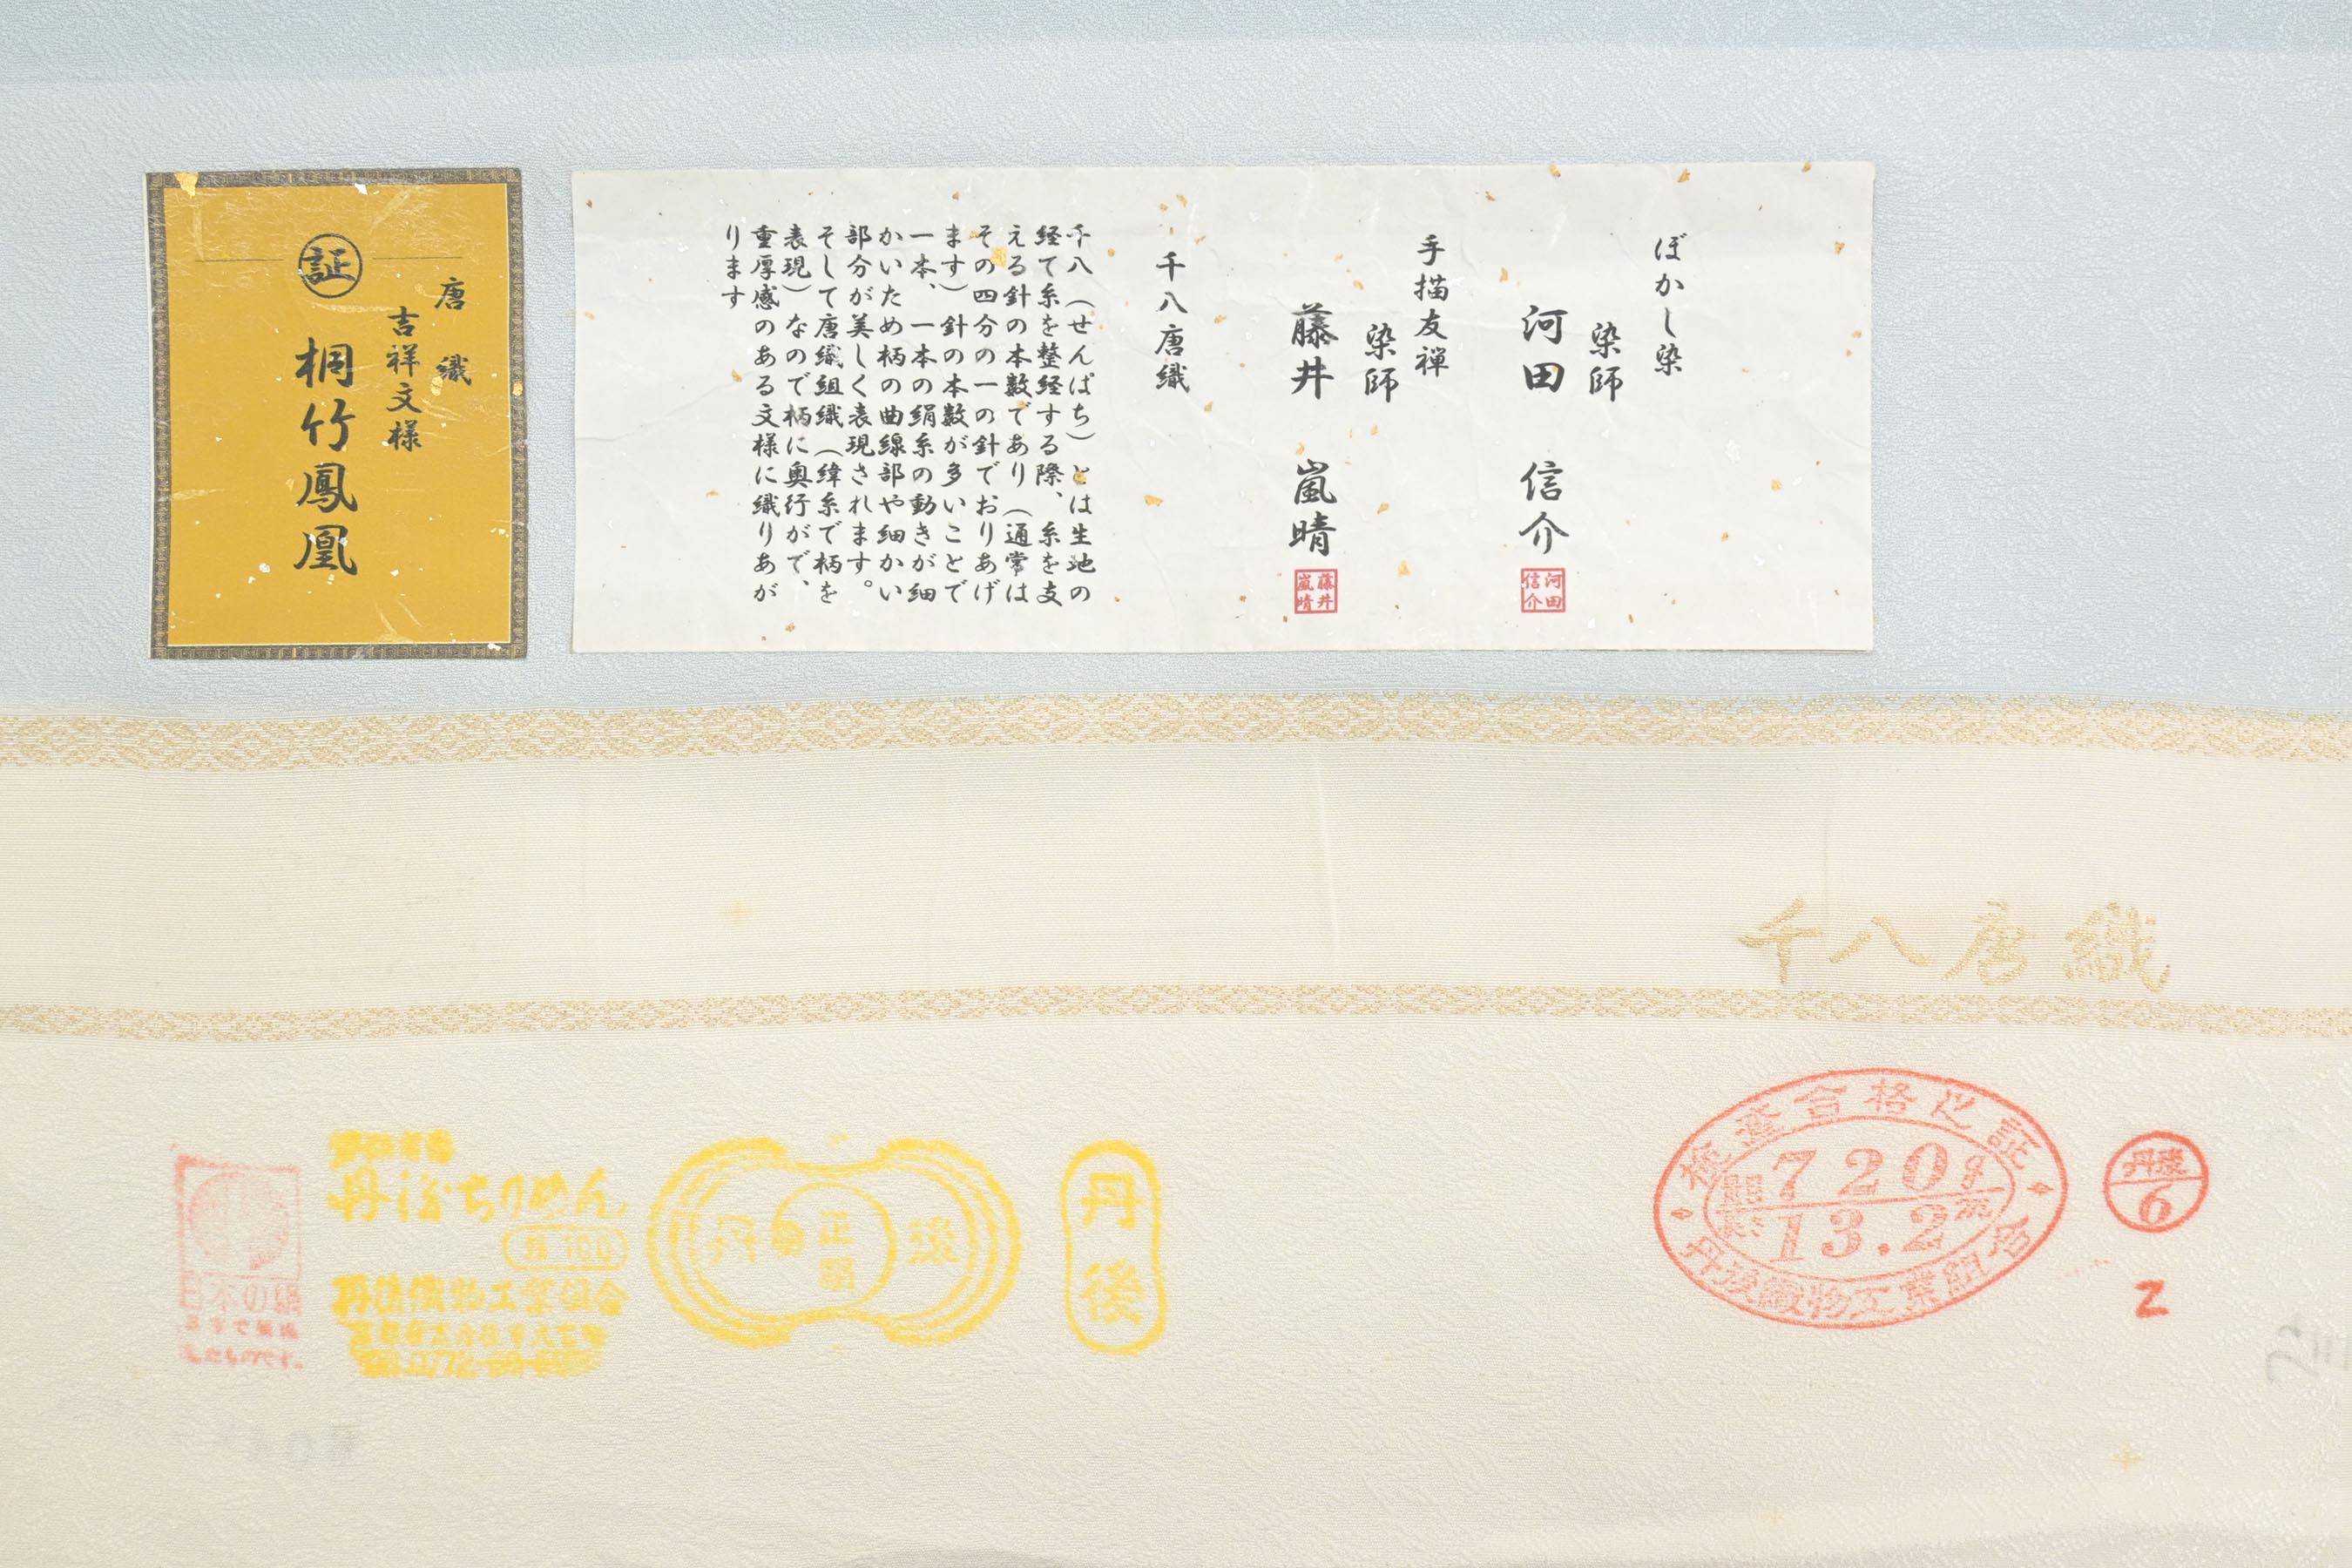 証
唐織
吉祥文様
桐竹鳳凰
ぼかし染
染師
河田 信介
河田信介
手描友禅
染師
藤井 嵐晴
藤井嵐晴
千八唐織
千八(せんぱち)とは生地の
経て糸を整経する際、糸を支
える針の本数であり(通常は
その四分の一の針でおりあげ
ます)針の本数が多いことで
一本、一本の絹糸の動きが細
かいため柄の曲線部や細かい
部分が美しく表現されます。
そして唐織組織(緯糸で柄を
表現)なので柄に奥行がで、
重厚感のある文様に織りあが
ります
千八唐織
日本の絹
丹後ちりめん
絹100
丹後織物工業組合
丹後
正
丹後
検査合格之証
720g
13.2m
丹後織物工業組合
丹後
6
Z